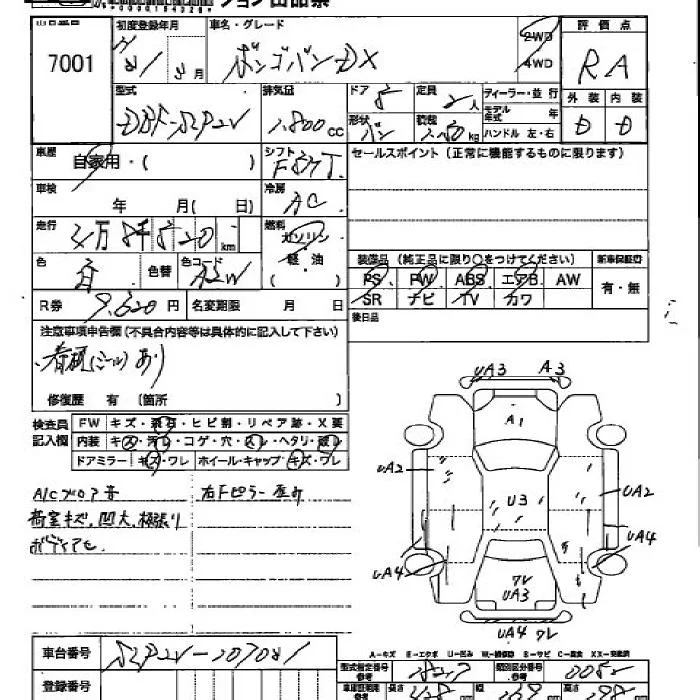 ション 出品票
出品番号
7001
初度登録年月
月
車名・グレード
ボンゴバン DX
2WD
4WD
評価点
RA
外装 内装
D D
型式
DBF-SLP2V
排気量
1,800cc
ドア 5
定員 2人
形状 バン
積載 kg
ディーラー・並行
モデル年式 年
ハンドル 左・右
車歴
自家用・( )
シフト
F5MT
セールスポイント(正常に機能するものに限ります)
車検
年 月( 日)
冷房
AC
走行
km
燃料
ガソリン
軽油
( )
色
色替
色コード
装備品(純正品に限り○をつけてください)
新車保証書
PS PW ABS エアB AW
SR ナビ TV カワ
有・無
R券 9,620円
名変期限 月 日
後日品
注意事項申告欄(不具合内容等は具体的に記入して下さい)
看板(シール)あり
修復歴 有 (箇所 )
検査員
記入欄
FW キズ・飛石・ヒビ割・リペア跡・X要
内装 キズ・汚れ・コゲ・穴・スレ・ヘタリ・破レ
ドアミラー キズ・ワレ ホイール・キャップ キズ・ワレ
A/Cブロア音
荷室キズ,凹大,板張り
ボディアセ
右Fピラー歪み
UA3 A3
A1
UA2
U3
UA2
UA4
UA4
ワレ
UA3
UA4 ワレ
車台番号
SLP2V-107081
登録番号
A-キズ E-エクボ U-凹み W-補修跡 S-サビ C-腐食 XX-交換済
型式指定番号
参考
類別区分番号
参考
0052
長さ
幅
高さ